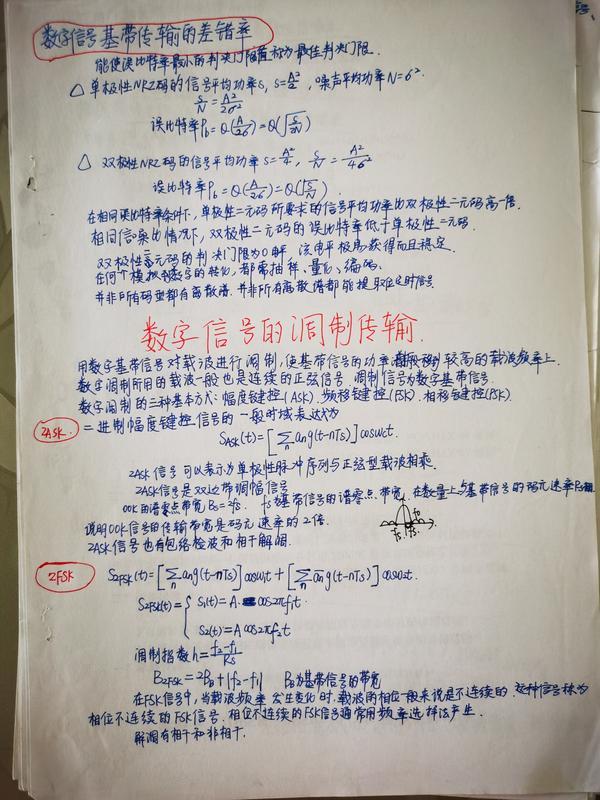 数字信号基带传输的差错率
能使误比特率最小的判决门限值称为最佳判决门限.
△ 单极性NRZ码的信号平均功率S, S=A²/2, 噪声平均功率N=σ².
S/N=A²/2σ²
误比特率Pb=Q(A/2σ)=Q(√(S/2N))
△ 双极性NRZ码的信号平均功率S=A²/4, S/N=A²/4σ²
误比特率Pb=Q(A/2σ)=Q(√(S/N)).
在相同误比特率条件下,单极性二元码所要求的信号平均功率比双极性二元码高一倍.
相同信噪比情况下,双极性二元码的误比特率低于单极性二元码.
双极性二元码的判决门限为0电平,该电平极易获得而且稳定.
任何个模拟到数字的转化,都需抽样、量化、编码.
并非所有码型都有离散谱.并非所有离散谱都能提取位定时信号.
数字信号的调制传输.
用数字基带信号对载波进行调制,使基带信号的功率谱搬移到较高的载波频率上.
数字调制所用的载波一般也是连续的正弦信号,调制信号为数字基带信号.
数字调制的三种基本方式:幅度键控(ASK).频移键控(FSK).相移键控(PSK).
2ASK. 二进制幅度键控信号的一般时域表达式为
SASK(t)=[∑n ang(t-nTs)]cosωct.
2ASK信号可以表示为单极性脉冲序列与正弦型载波相乘.
2ASK信号是双边带调幅信号
OOK的谱零点带宽Bs=2fs. fs为基带信号的谱零点带宽,在数量上与基带信号的码元速率Rs相同.
说明OOK信号的传输带宽是码元速率的2倍.
2ASK信号也有包络检波和相干解调.
2FSK S2FSK(t)=[∑n ang(t-nTs)]cosω1t+[∑n āng(t-nTs)]cosω2t.
S2FSK(t)={ S1(t)=A cos2πf1t
S2(t)=A cos2πf2t
调制指数h=(f2-f1)/Rs
B2FSK=2PB+|f2-f1| PB为基带信号的带宽
在FSK信号中,当载波频率发生变化时.载波的相位一般来说是不连续的.这种信号称为
相位不连续的FSK信号.相位不连续的FSK信号通常用频率选择法产生.
解调有相干和非相干.